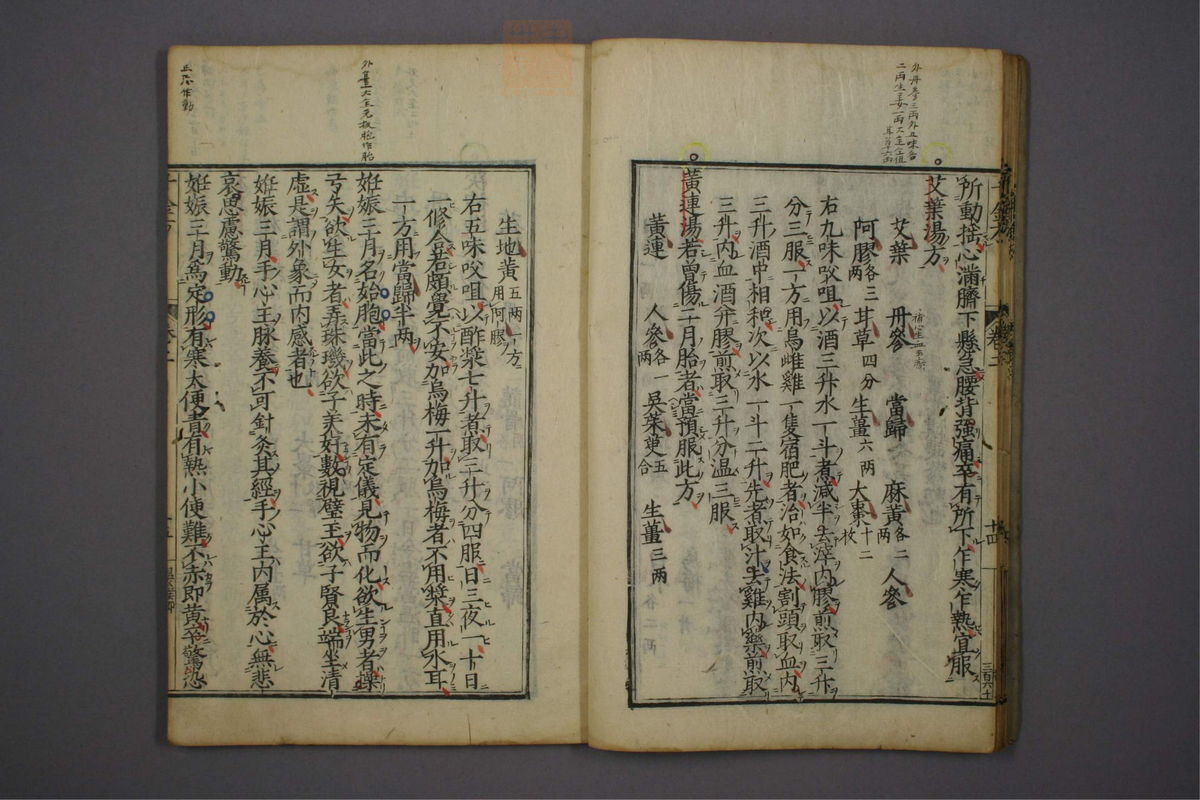 所動搖心滿臍下懸急腰背强痛卒有所下乍寒乍熱宜服
艾葉湯方
艾葉 丹參 當歸 麻黃各二兩 人參
阿膠各三兩 甘草四分 生薑六兩 大棗十二枚
右九味㕮咀以酒三升水一斗煮減半去滓內膠煎取三升
分三服一方用烏雌雞一隻宿肥者治如食法割頭取血內
三升酒中相和次以水一斗二升先煮取汁去雞內藥煎取
三升內血酒并膠煎取三升分溫三服
黃連湯若曾傷二月胎者當預服此方
黃連 人參各一兩 吳茱萸五合 生薑三兩
生地黃五兩一方用阿膠
右五味㕮咀以酢漿七升煮取三升分四服日三夜一十日
一修合若頗覺不安加烏梅一升加烏梅者不用漿直用水耳
一方用當歸半兩
妊娠三月名始胞當此之時未有定儀見物而化欲生男者操
弓矢欲生女者弄珠璣欲子美好數視璧玉欲子賢良端坐清
虛是謂外象而內感者也
妊娠三月手心主脉養不可針灸其經手心主內屬於心無悲
哀思慮驚動
妊娠三月爲定形有寒大便青有熱小便難不赤即黃卒驚恐